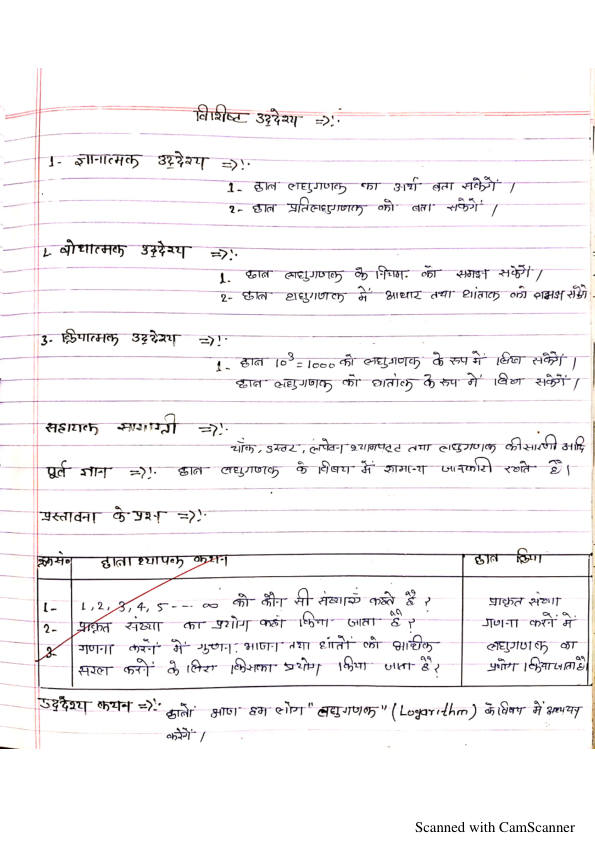 विशिष्ट उद्देश्य =>:-
1- ज्ञानात्मक उद्देश्य =>:-
1- छात्र लघुगणक का अर्थ बता सकेगें ।
2- छात्र प्रतिलघुगणक को बता सकेगें ।
2 बोधात्मक उद्देश्य =>:-
1. छात्र लघुगणक के नियम को समझ सकेगें ।
2- छात्र लघुगणक में आधार तथा घातांक को समझ सकेंगे
3- क्रियात्मक उद्देश्य =>:-
1- छात्र 10³=1000 को लघुगणक के रूप में लिख सकेगें ।
छात्र लघुगणक को घातांक के रूप में लिख सकेगें ।
सहायक सामाग्री =>:-
चॉक, डस्टर, लपेटन श्यामपट्ट तथा लघुगणक की सारणी आदि
पूर्व ज्ञान =>:- छात्र लघुगणक के विषय में सामान्य जानकारी रखते है ।
प्रस्तावना के प्रश्न =>:-
क्रमसं० छात्राध्यापक कथन छात्र क्रिया
1- 1, 2, 3, 4, 5 --- ∞ को कौन सी संख्याएं कहते है ? प्राकृत संख्या
2- प्राकृत संख्या का प्रयोग कहां किया जाता है ? गणना करने में
3- गणना करने में गुणन, भाजन तथा घातों को अधिक लघुगणक का
सरल करने के लिए किसका प्रयोग किया जाता है ? प्रयोग किया जाता है।
उद्देश्य कथन =>:- छात्रों आज हम लोग "लघुगणक" (Logarithm) के विषय में अध्ययन
करेगें ।
Scanned with CamScanner